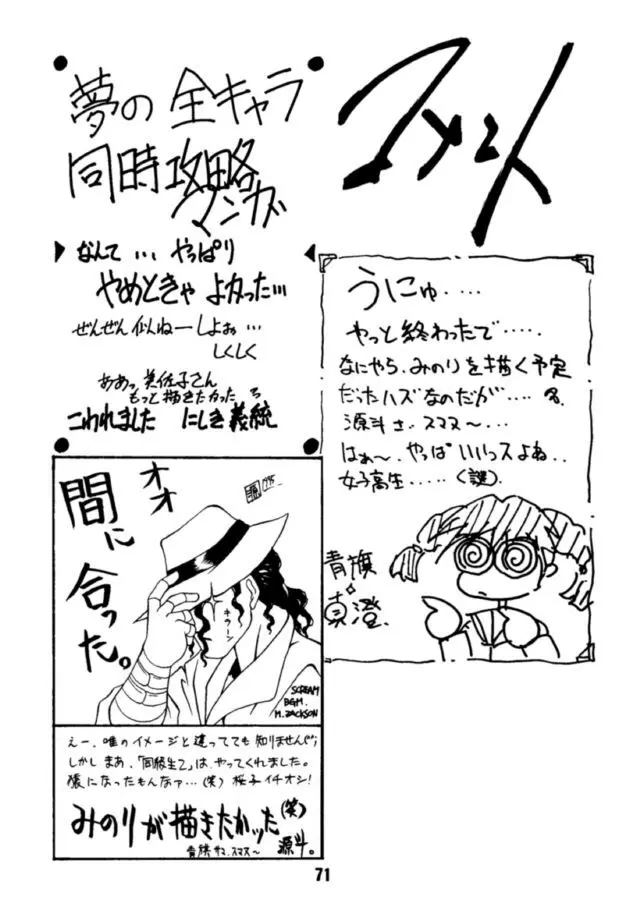 コメント
夢の 全キャラ
同時攻略
マンガ
なんて … やっぱり
やめときゃ よかった…
ぜんぜん 似ねーしよぉ…
しくしく
ああっ 美佐子さん
もっと描きたかったろ
こわれました にしき義統
うにゅ.....
やっと終わったで.....
なにやら、みのりを描く予定
だったハズなのだが....
源斗さ、スマヌ〜...
はぁ〜、やっぱ いいっスよね..
女子高生.....(謎).
青旗
真澄
オオ
間に
合った。
キラーン
SCREAM
BGM.
M.JACKSON
えー、唯のイメージと違ってても知りませんぜ;
しかし まあ、「同級生2」は、やってくれました。
猿になったもんなァ…(笑) 桜子イチオシ!
みのりが描きたかッた(笑)
青旗 スマス〜
源斗。
71